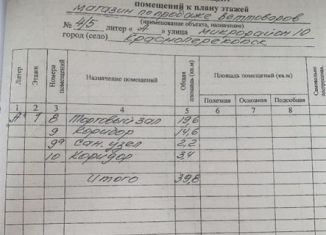 помещений к плану этажей
магазин по продаже ветоваров
(наименование объекта, назначение)
№ 4/5 литер "А" улица микрорайон 10
город (село) Красноперекопск
Литер Этаж Номера помещений Назначение помещений Общая площадь (кв.м) Площадь помещений (кв.м)
Полезная Основная Подсобная
1 2 3 4 5 6 7 8
А 1 8 Торговый зал 19,6
9 Коридор 14,6
9а Сан. узел 2,2
10 Коридор 3,4
Итого 39,8